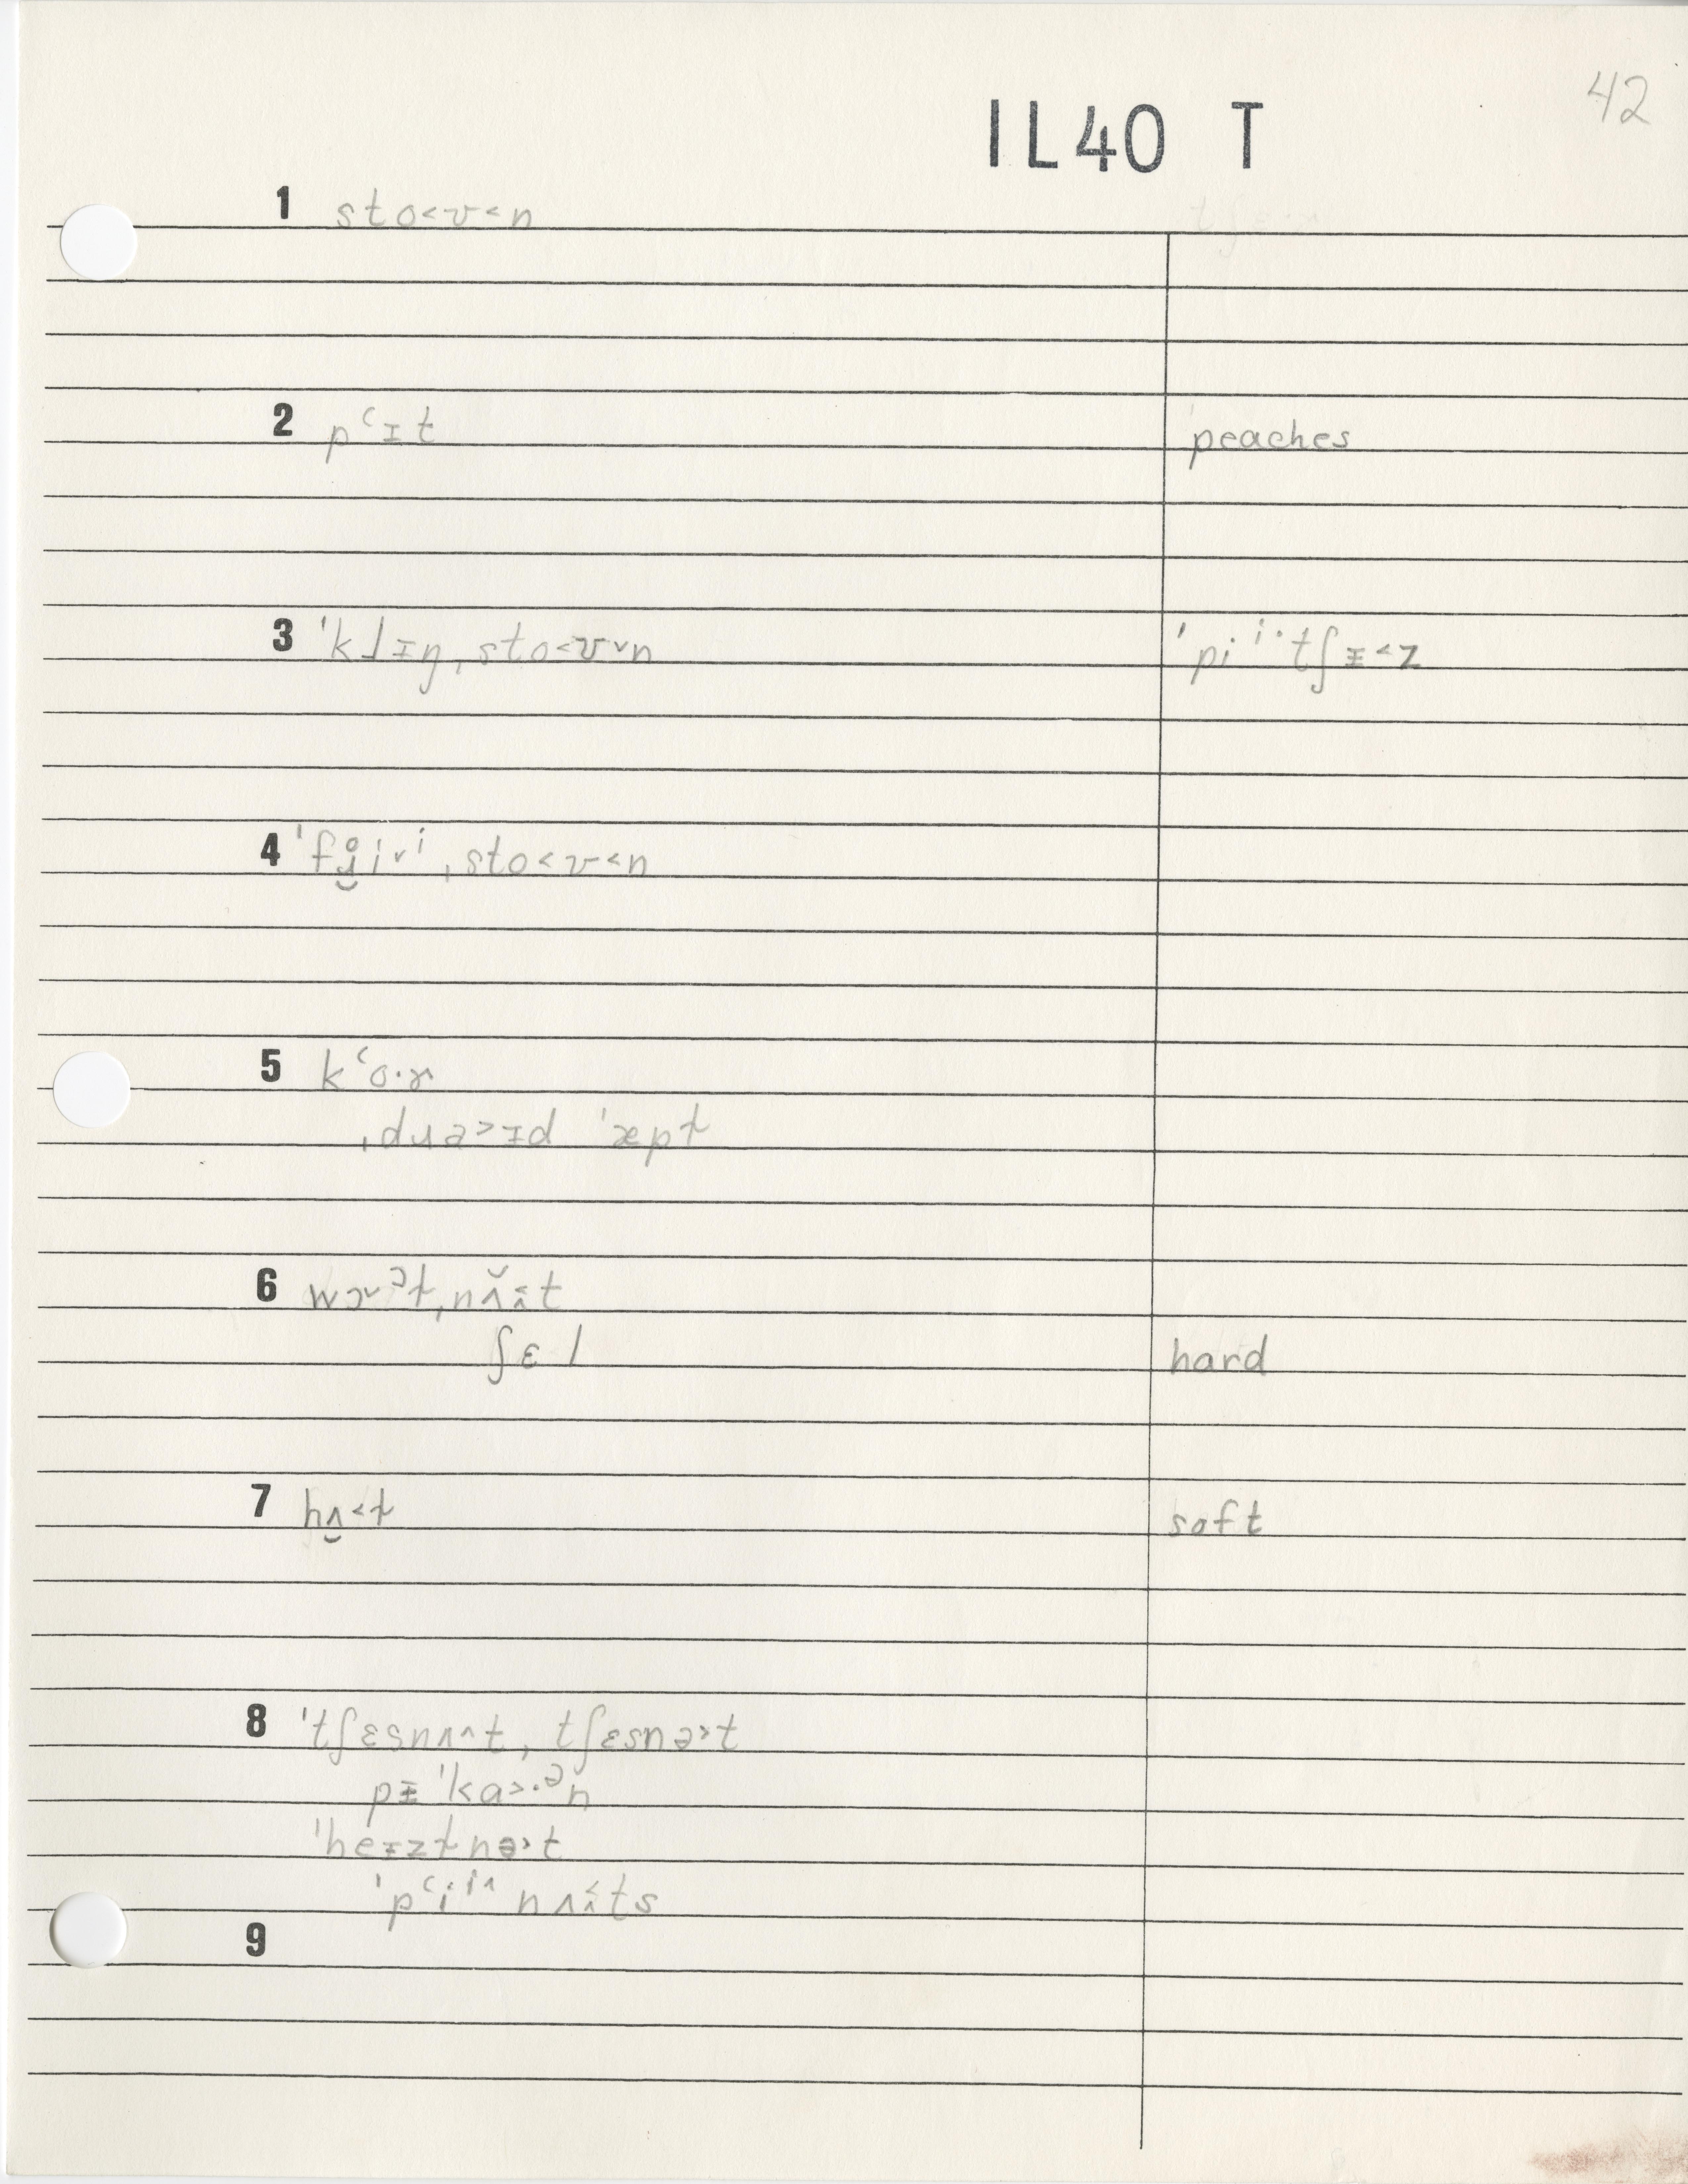 42
IL40 T
1 sto<ʊ<n
2 pʻɪt
peaches
3 ˈklɪŋˌsto<ʊ˅n
ˈpiⁱ·tʃɪ<z
4 ˈfɹ̥̮i˅ⁱˌsto<ʊ<n
5 kʻo·ɚ
ˌdɹa>ɪd ˈæpɫ
6 wɔ˅ᵊɫˌnʌ̆ʌ̂t
ʃɛl
hard
7 hʌ̮<ɫ
soft
8 ˈtʃɛsnʌ^t, tʃɛsnə>t
pɪˈka>·ᵊn
ˈheɪzɫnə>t
ˈpʻiⁱ^nʌʌ̂ts
9